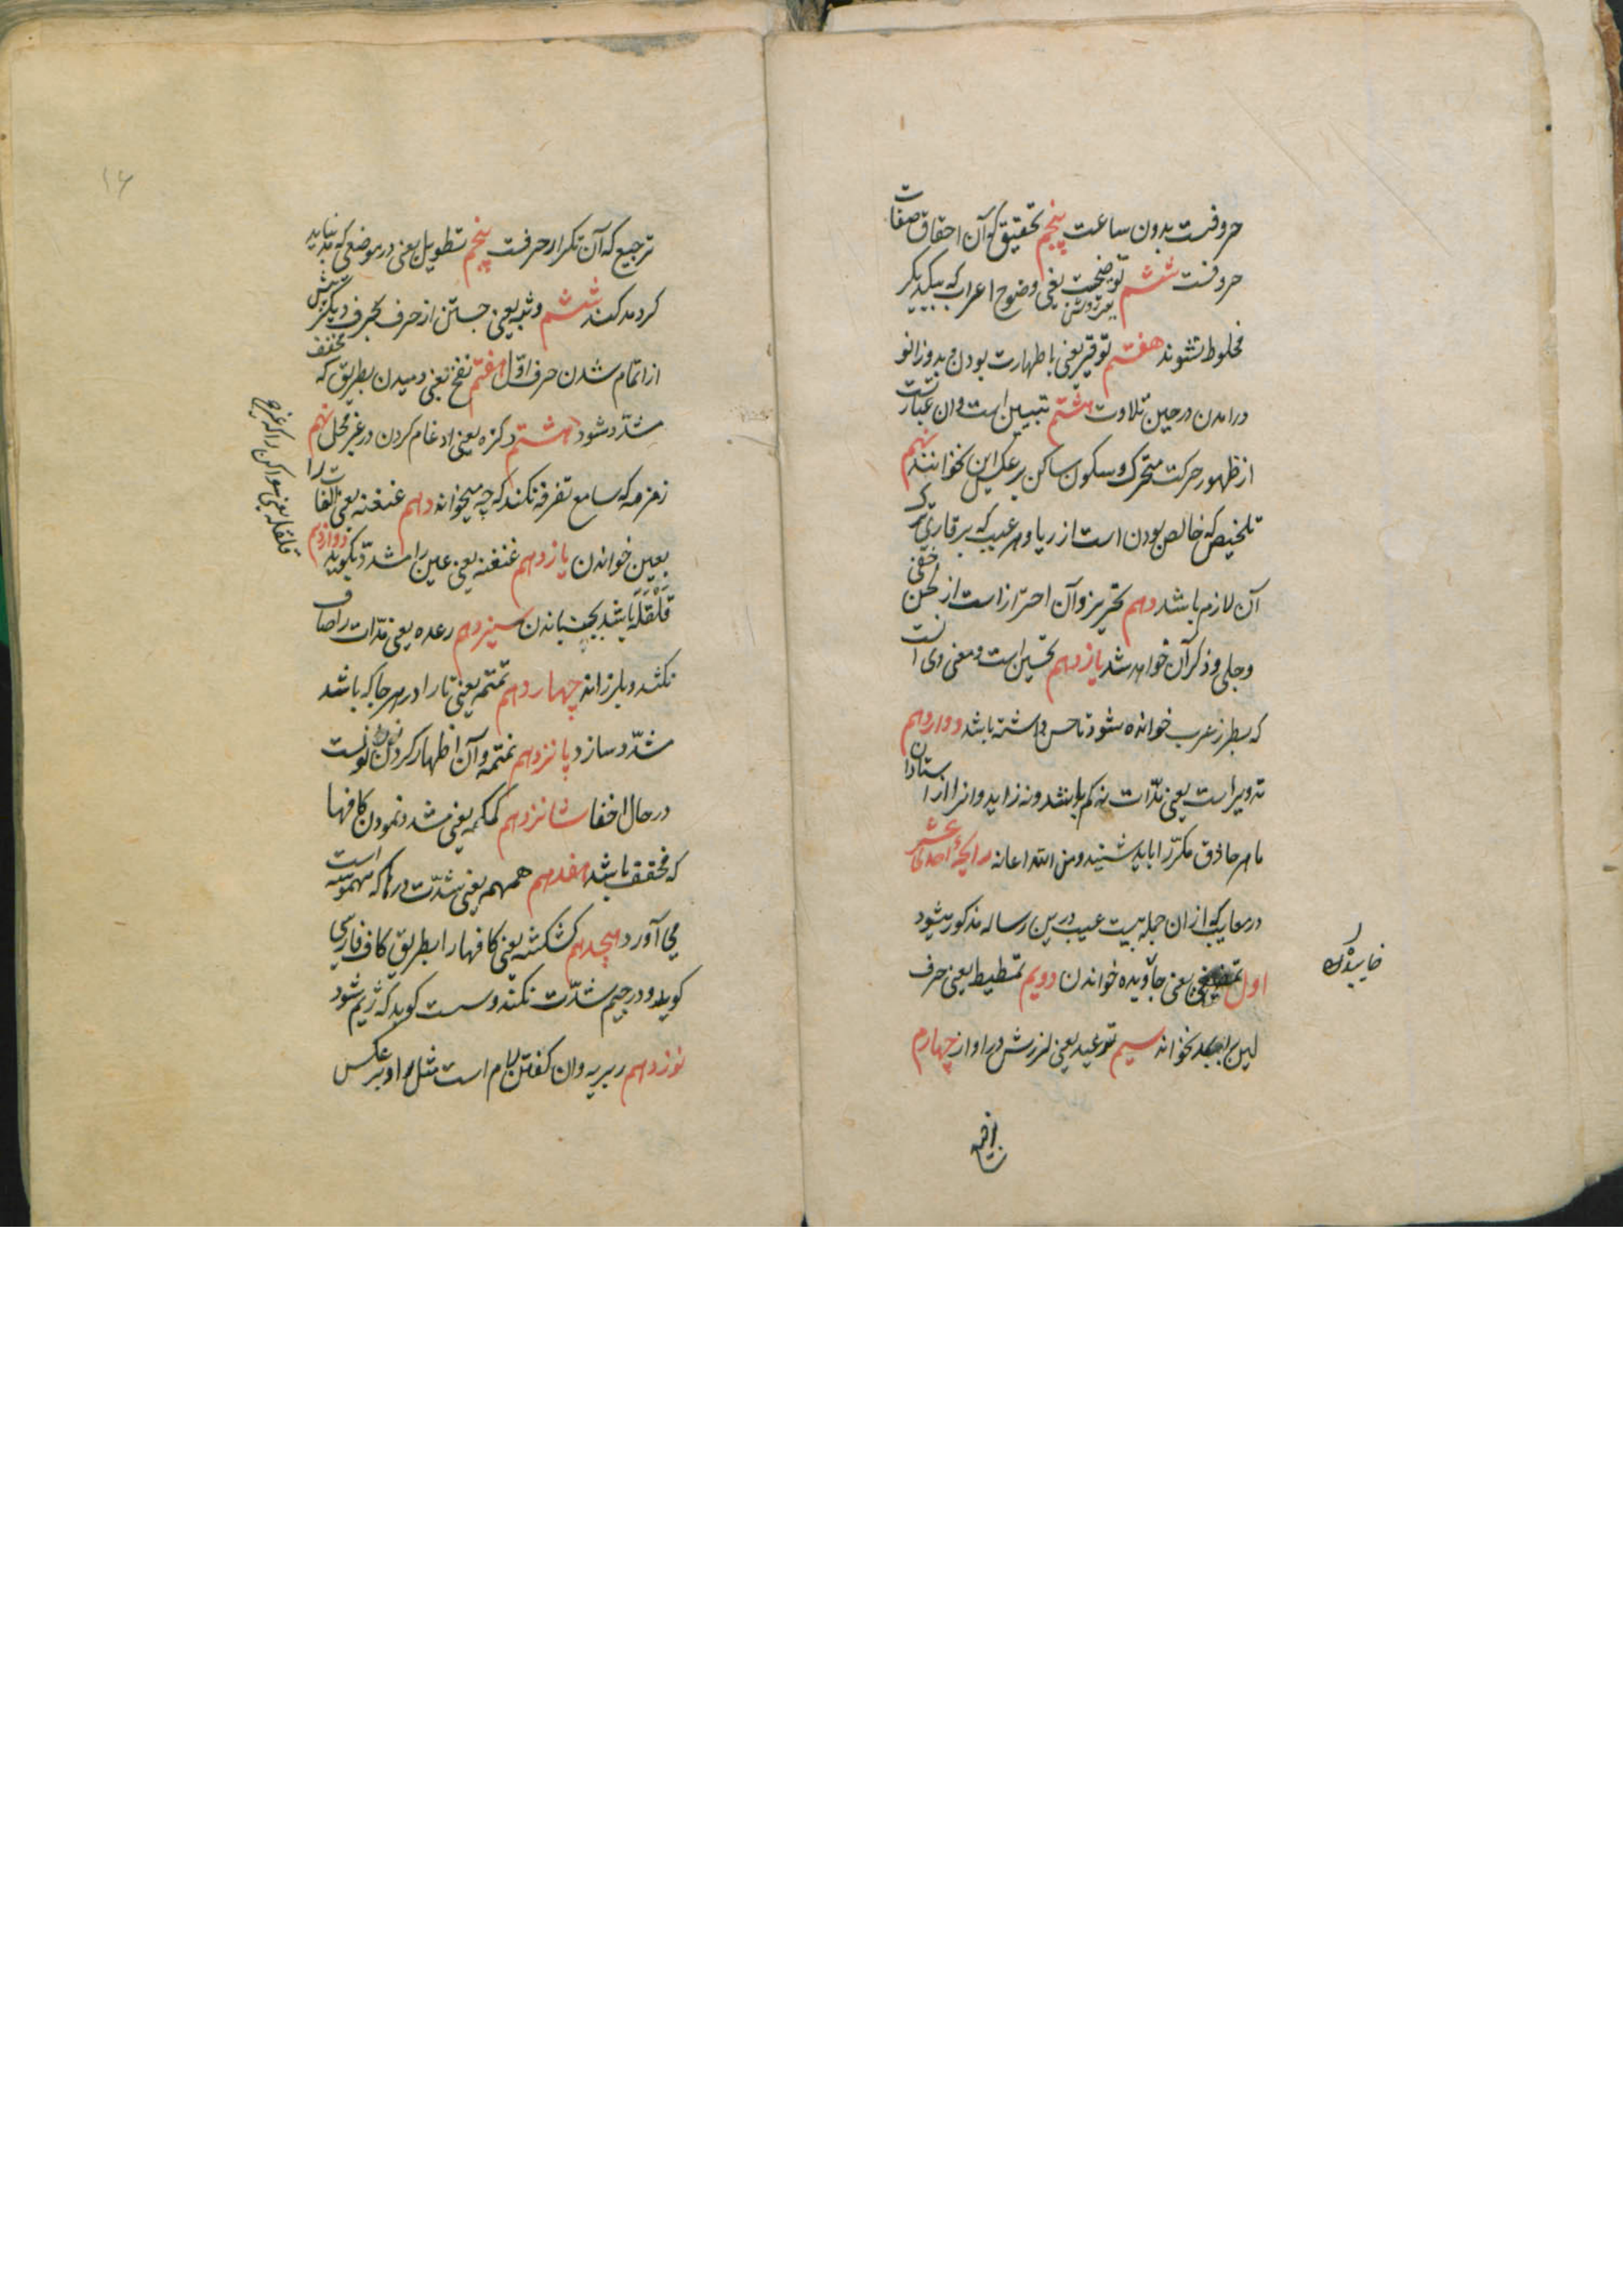 حروفست بدون ساعت پنجم تحقیق که آن احقاق صفات
حروفست ششم توضیحت یعنی وضوح اعراب که بیکدیگر
مخلوط نشوند هفتم توقیر یعنی با طهارت بودن و بدو زانو
درامدن در حین تلاوت هشتم تبیین است و ان عبارتست
از ظهور حرکت متحرک و سکون ساکن بر عکس این نخوانند نهم
تلخیص که خالص بودن است از ریا و هر عیب که بر قاری
آن لازم باشد دهم تحریز و آن احتراز است از لحن خفی
و جلی و ذکر آن خواهد شد یازدهم تحسین است و معنی وی انست
که بطرز عرب خوانده شود تا حسن داشته باشد دوازدهم
تدویر است یعنی مدّات نه کم باشد و نه زاید و انرا از استادان
ماهر حاذق مکرّر اباید شنید و من الله اعانه
در معایب که از ان جمله بیست عیب درین رساله مذکور میشود
اول یعنی جاویده خواندن دویم تمطیط یعنی حرف
لین را بمد نخواند سیم توعید یعنی لرزش در اواز چهارم
خاییدن
ترجیع که آن تکرار حرفت پنجم تطویل یعنی در موضعی که مد نباید
کرد مد کند ششم وثبه یعنی جستن از حرف بحرف دیگر پیش
از اتمام شدن حرف اوّل هفتم نفخ یعنی دمیدن بطریق که مخفف
مشدّد شود هشتم وکزه یعنی ادغام کردن در غیر محل نهم
زمزمه که سامع تفرقه نکند که چه میخواند دهم عنعنه یعنی الفات را
بعین خواندن یازدهم عنعنه یعنی عین را مشدّد بگوید دوازدهم
قلقله باشد بجنباندن سیزدهم رعده یعنی مدّات را صاف
نکشد و بلرزاند چهاردهم تمتمه یعنی تا را در هر جا که باشد
مشدّد سازد پانزدهم نمنمه و آن اظهار کردن نونست
در حال اخفا شانزدهم کمکمه یعنی مشدد نمودن کافها
که مخفف باشد هفدهم همهمه یعنی شدّت در ها که مهموسه است
می آورد هیجدهم کشکشه یعنی کافها را بطریق کاف فارسی
کوید و در جیم شدّت نکند و سست کوید که ژیم شود
نوزدهم ربربه و ان کفتن لام است مثل را و بر عکس